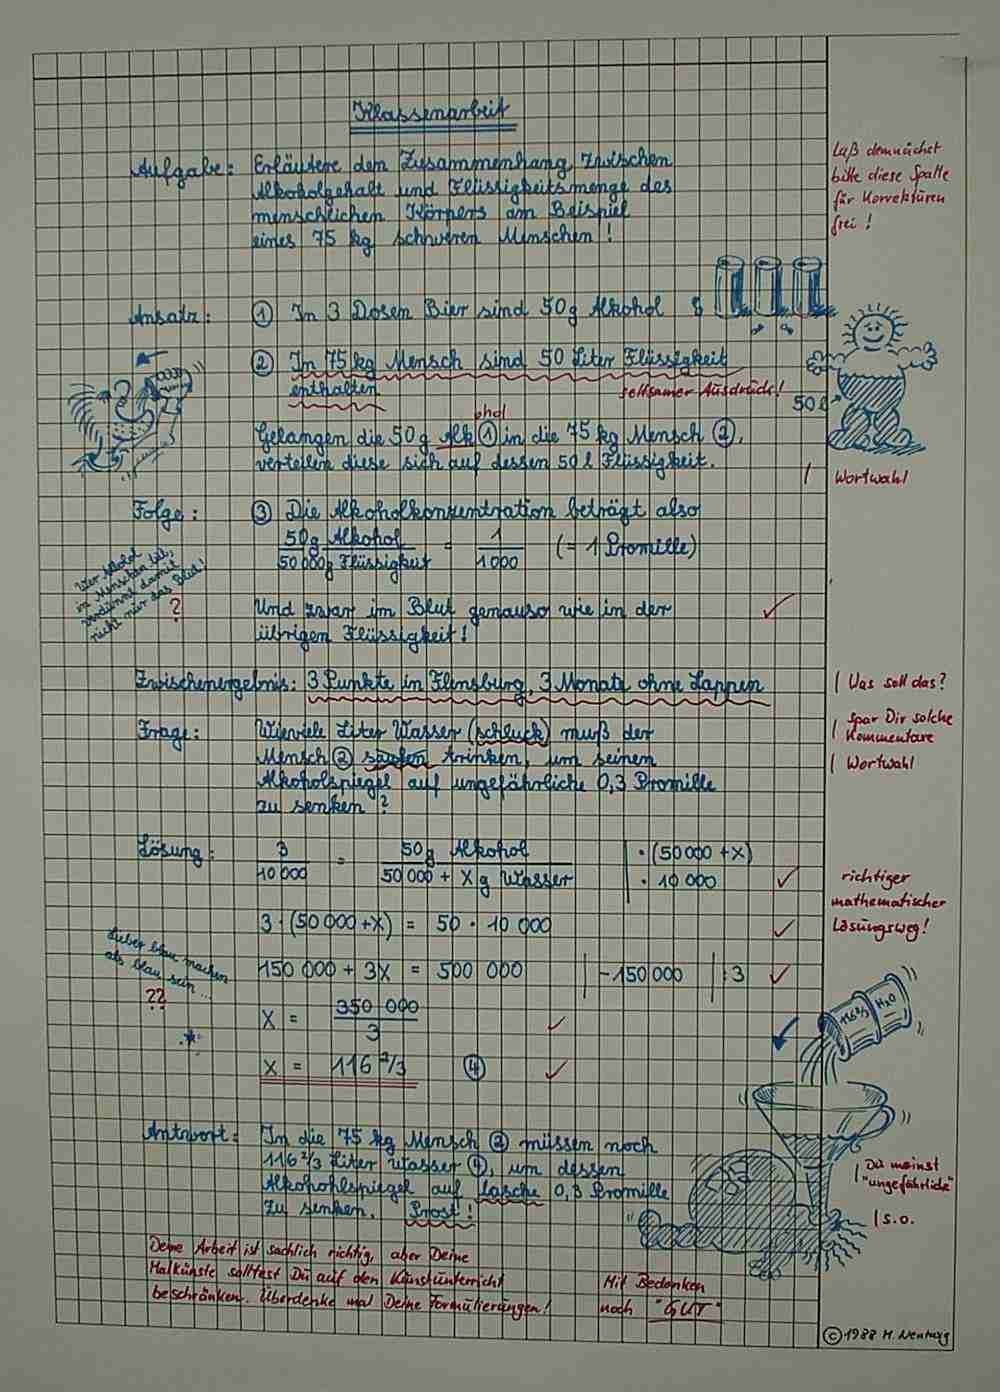 Klassenarbeit
Aufgabe: Erläutere den Zusammenhang zwischen
Alkoholgehalt und Flüssigkeitsmenge des
menschlichen Körpers am Beispiel
eines 75 kg schweren Menschen!
Laß demnächst
bitte diese Spalte
für Korrekturen
frei!
Ansatz: ① In 3 Dosen Bier sind 50g Alkohol
② In 75 kg Mensch sind 50 Liter Flüssigkeit
enthalten
seltsamer Ausdruck!
50 l
ohol
Gelangen die 50g Alk ① in die 75 kg Mensch ②,
verteilen diese sich auf dessen 50 l Flüssigkeit.
| Wortwahl
Folge: ③ Die Alkoholkonzentration beträgt also
50g Alkohol / 50 000g Flüssigkeit = 1 / 1000 (= 1 Promille)
Wer Alkohol
in Menschen tut,
verdünnt damit
nicht nur das Blut!
?
Und zwar im Blut genauso wie in der
übrigen Flüssigkeit!
Zwischenergebnis: 3 Punkte in Flensburg, 3 Monate ohne Lappen
| Was soll das?
Frage: Wieviele Liter Wasser (schluck) muß der
Mensch ② saufen trinken, um seinen
Alkoholspiegel auf ungefährliche 0,3 Promille
zu senken?
| Spar Dir solche
Kommentare
| Wortwahl
Lösung: 3 / 10 000 = 50g Alkohol / 50 000 + X g Wasser | · (50 000 + X)
| · 10 000
3 · (50 000 + X) = 50 · 10 000
richtiger
mathematischer
Lösungsweg!
150 000 + 3X = 500 000 | -150 000 | : 3
Lieber blau machen
als blau sein...
??
X = 350 000 / 3
X = 116 2/3 ④
116 2/3 H2O
Antwort: In die 75 kg Mensch ② müssen noch
116 2/3 Liter Wasser ④, um dessen
Alkohohlspiegel auf lasche 0,3 Promille
zu senken. Prost!
| Du meinst
"ungefährliche"
| s.o.
Deine Arbeit ist sachlich richtig, aber Deine
Malkünste solltest Du auf den Kunstunterricht
beschränken. Überdenke mal Deine Formulierungen!
Mit Bedenken
noch "GUT"
© 1988 M.